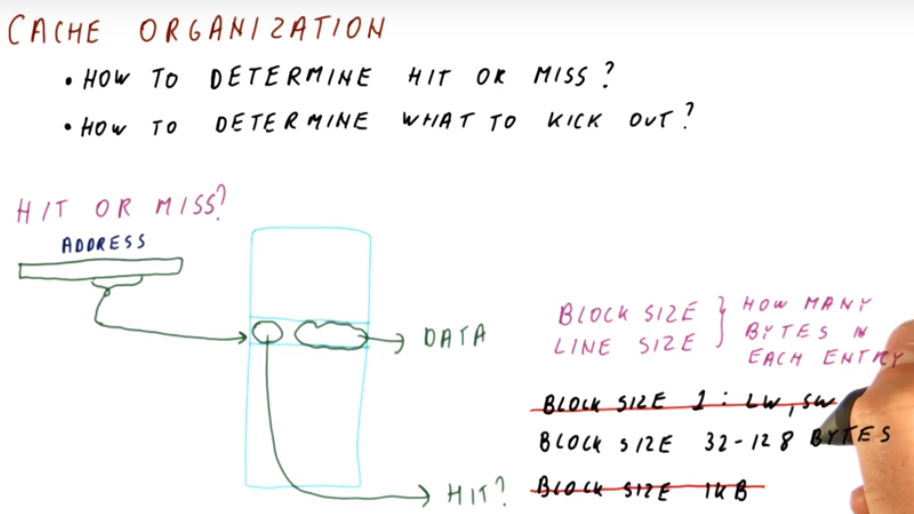 CACHE ORGANIZATION
• HOW TO DETERMINE HIT OR MISS?
• HOW TO DETERMINE WHAT TO KICK OUT?
HIT OR MISS?
ADDRESS
DATA
HIT?
BLOCK SIZE
LINE SIZE
HOW MANY
BYTES IN
EACH ENTRY
BLOCK SIZE 1 : LW, SW
BLOCK SIZE 32-128 BYTES
BLOCK SIZE 1KB